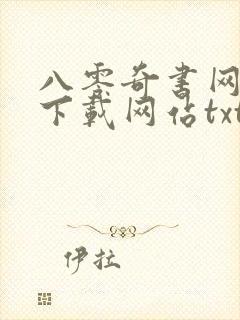 八零奇书网
下载网站txt
伊拉